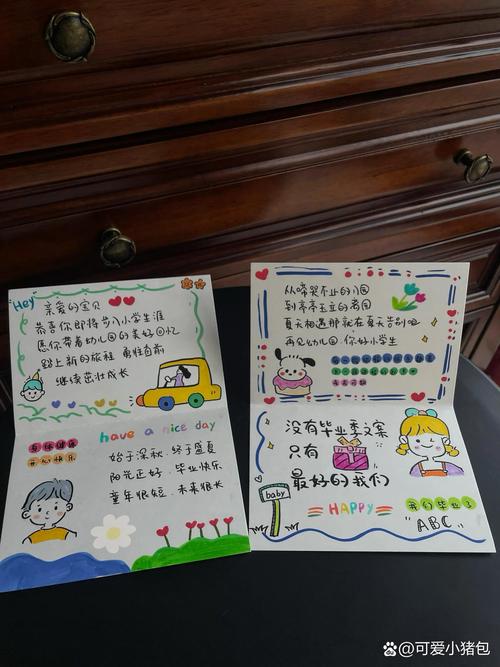 "Hey"
亲爱的宝贝
恭喜你即将步入小学生涯
愿你带着幼儿园的美好回忆
踏上新的旅程 勇往直前
继续茁壮成长
have a nice day
身体健康
开心快乐
始于深秋 终于盛夏
阳光正好 毕业快乐
童年很短 未来很长
从啼哭不止的小园
到亭亭玉立的
夏天相遇那就在夏天告别吧
再见幼儿园 你好小学生
没有毕业季文案
只有
最好的我们
baby
HAPPY
我们毕业了
"ABC"
可爱小猪包